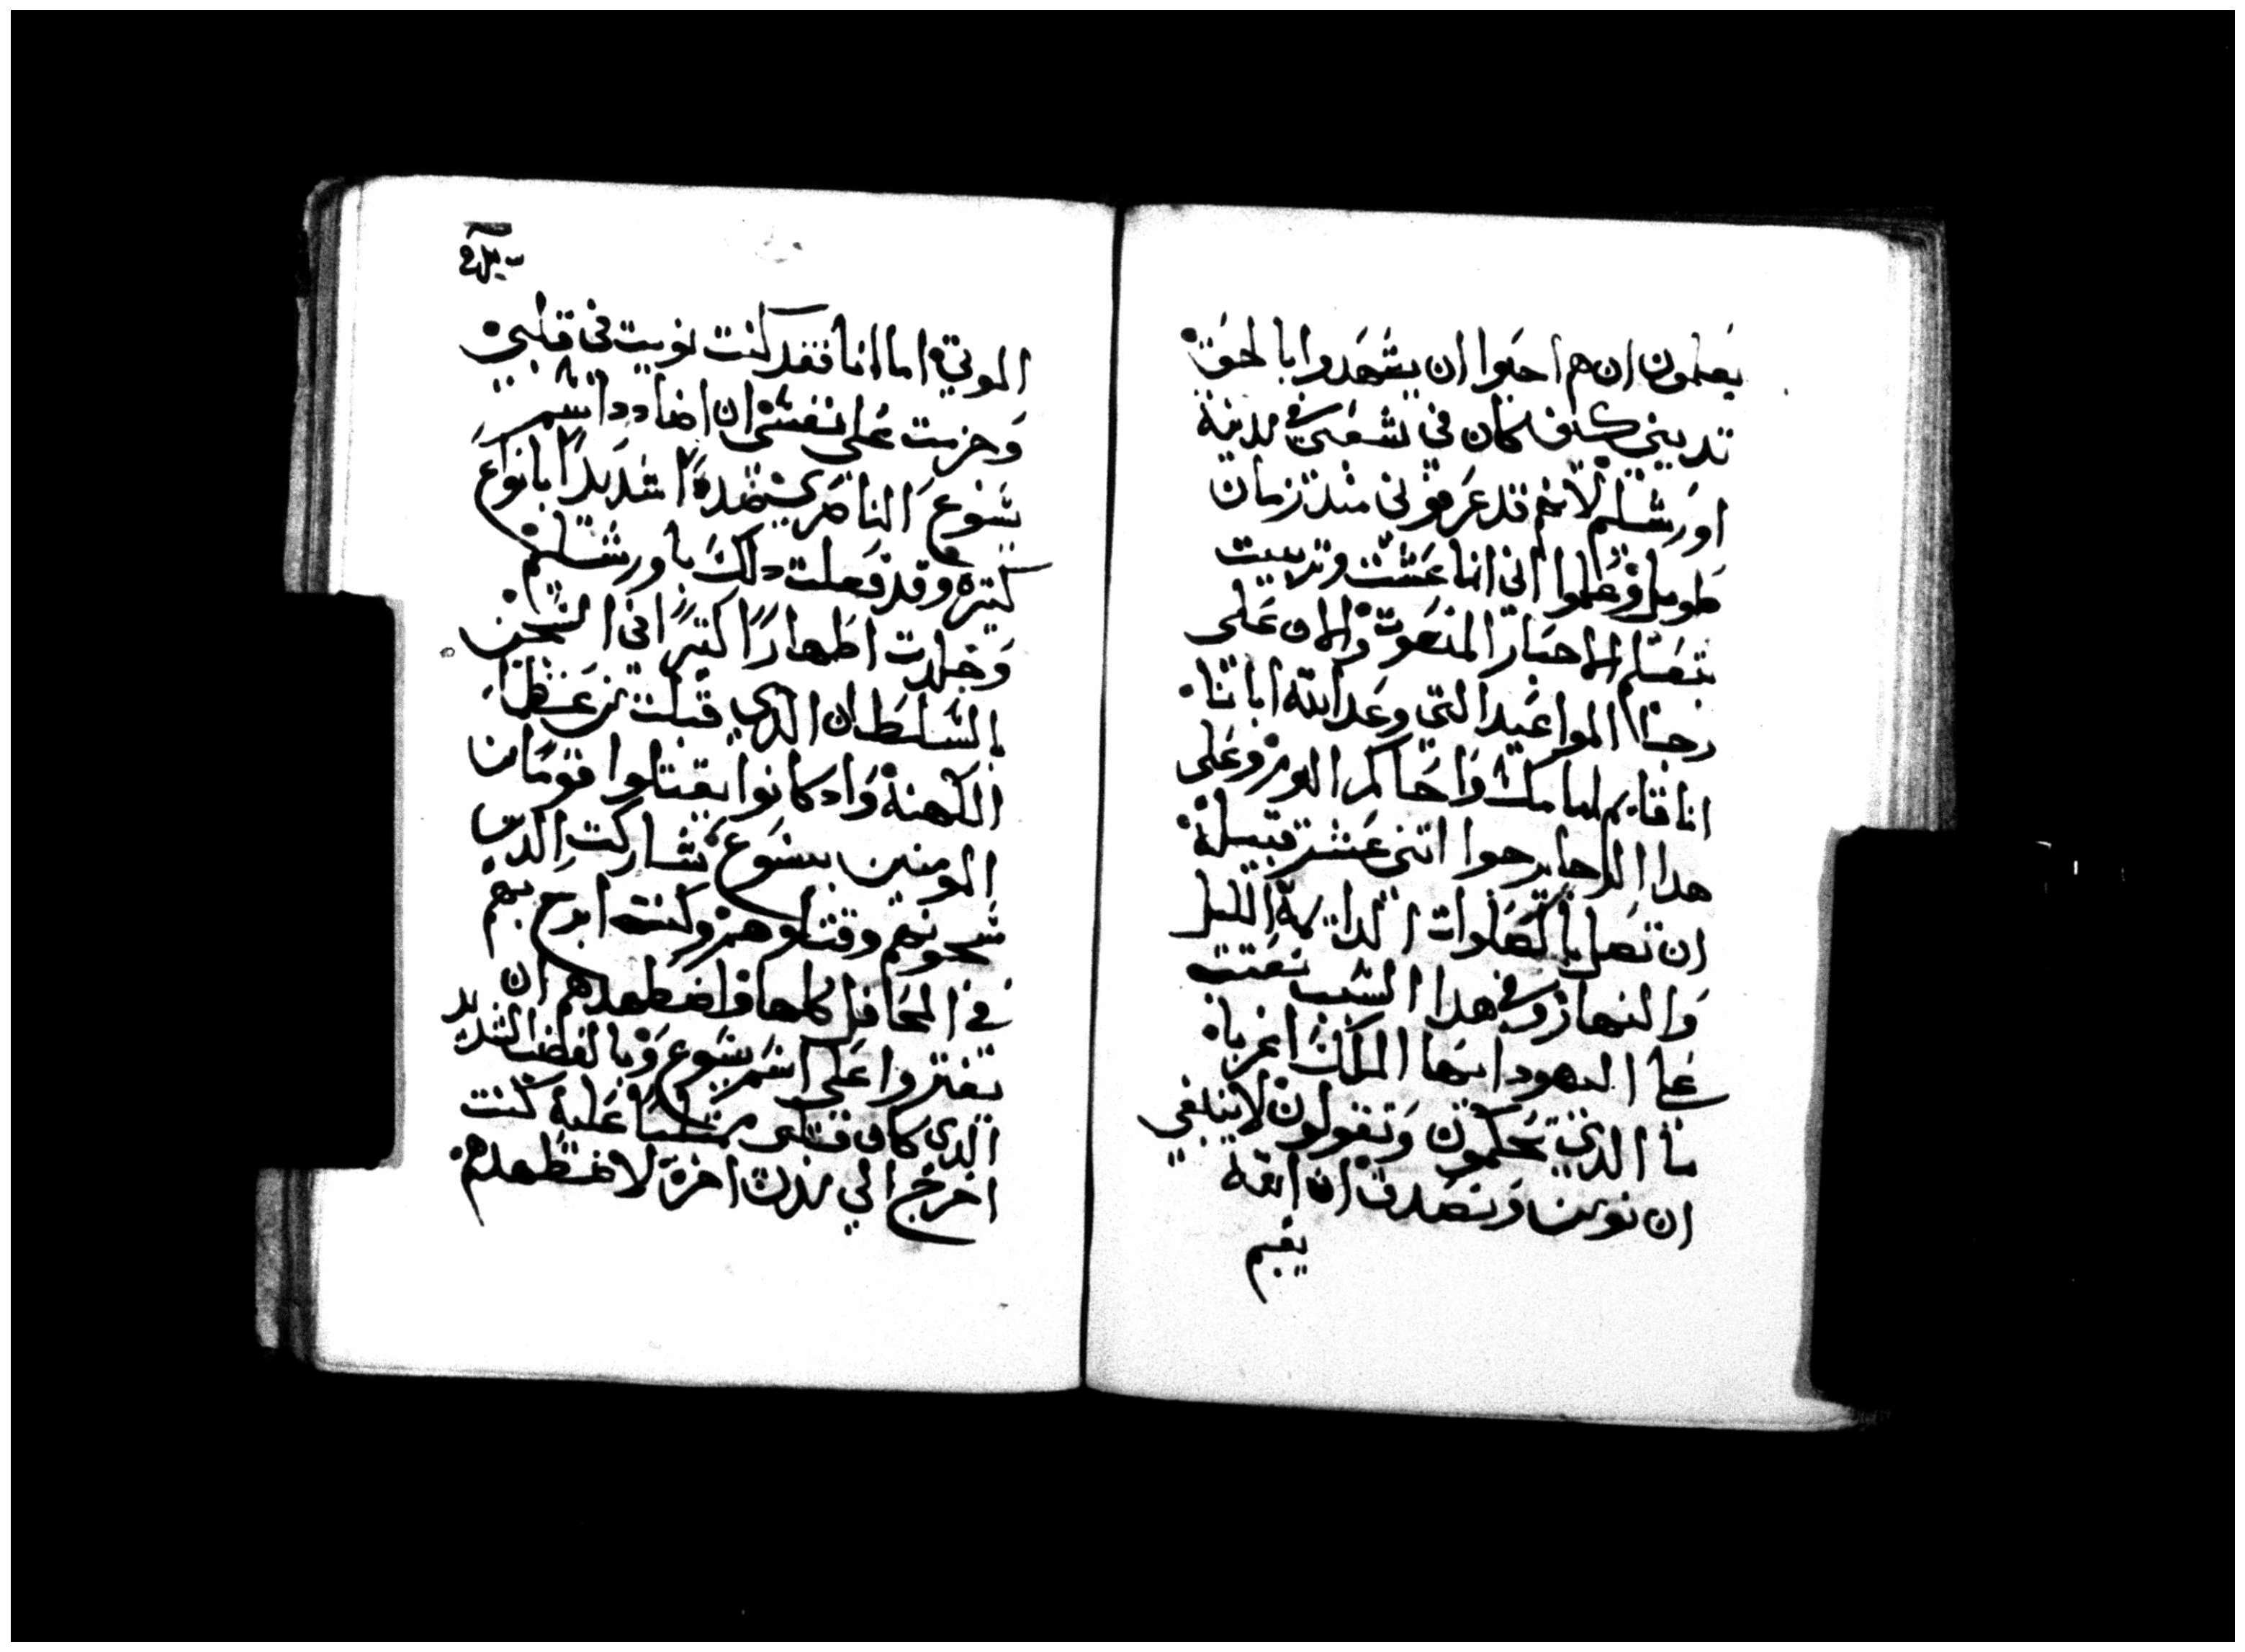 يعلمون ان هم احبوا ان يشهدوا بالحق
تديني كيف كان في شعبي في مدينة
اورشليم لانهم قد عرفوني مند زمان
طويل وعلموا اني انا عشت وتربيت
بتعليم الاحبار المنعوت والان على
رجا المواعيد التي وعد الله ابانا
انا قايم امامك واحاكم اليوم وعلى
هدا الرجا يرجوا اتني عشر قبيلة
ان تصل بالصلوات الدايمة الليل
والنهار وفي هدا السبب تعتب
على اليهود ايها الملك اغربا
ما الدي تحكمون وتقولون لا ينبغي
ان نومن ونصدق ان الله
يقيم
الموتي اما انا فقد كنت نويت في قلبي
وجزمت على نفسي ان اضادد اسم
يسوع الناصري مضهدة شديدا بانواع
كتيرة وقد فعلت دلك باورشليم
وخلدت اطهارا كتيرا في السجن
السلطان الدي قبلت من عظما
الكهنة واد كانوا يقتلوا قوما من
المومنين بيسوع شاركت الدين
سجونهم وقتلوهم وكنت ابرح بهم
في المحافل كلها واضطهدهم ان
يفتروا على اسم يسوع وبالغضب الشديد
الدي كان قلبي ممتليا عليه كنت
اخرج الي مدن اخرة لاضطهدهم